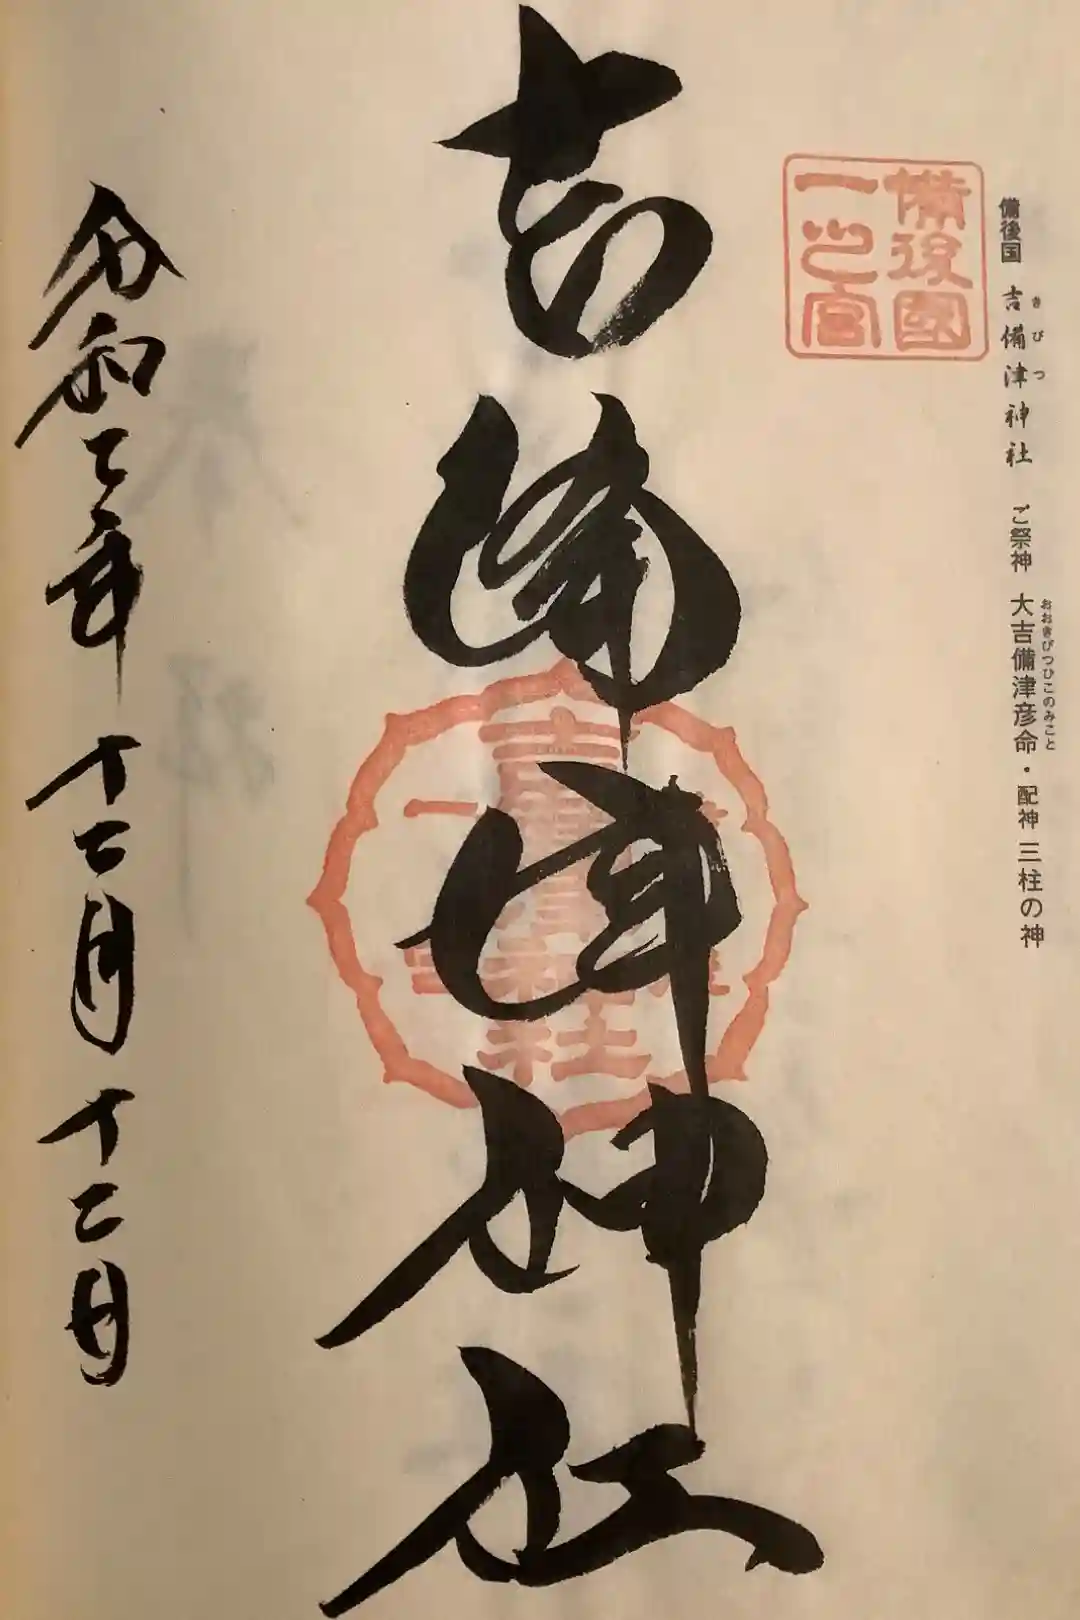 備後国 吉備津神社 ご祭神 大吉備津彦命・配神 三柱の神
きびつ
おおきびつひこのみこと
備後國
一之宮
吉備津神社
吉備津神社
令和二年 十二月 十二日